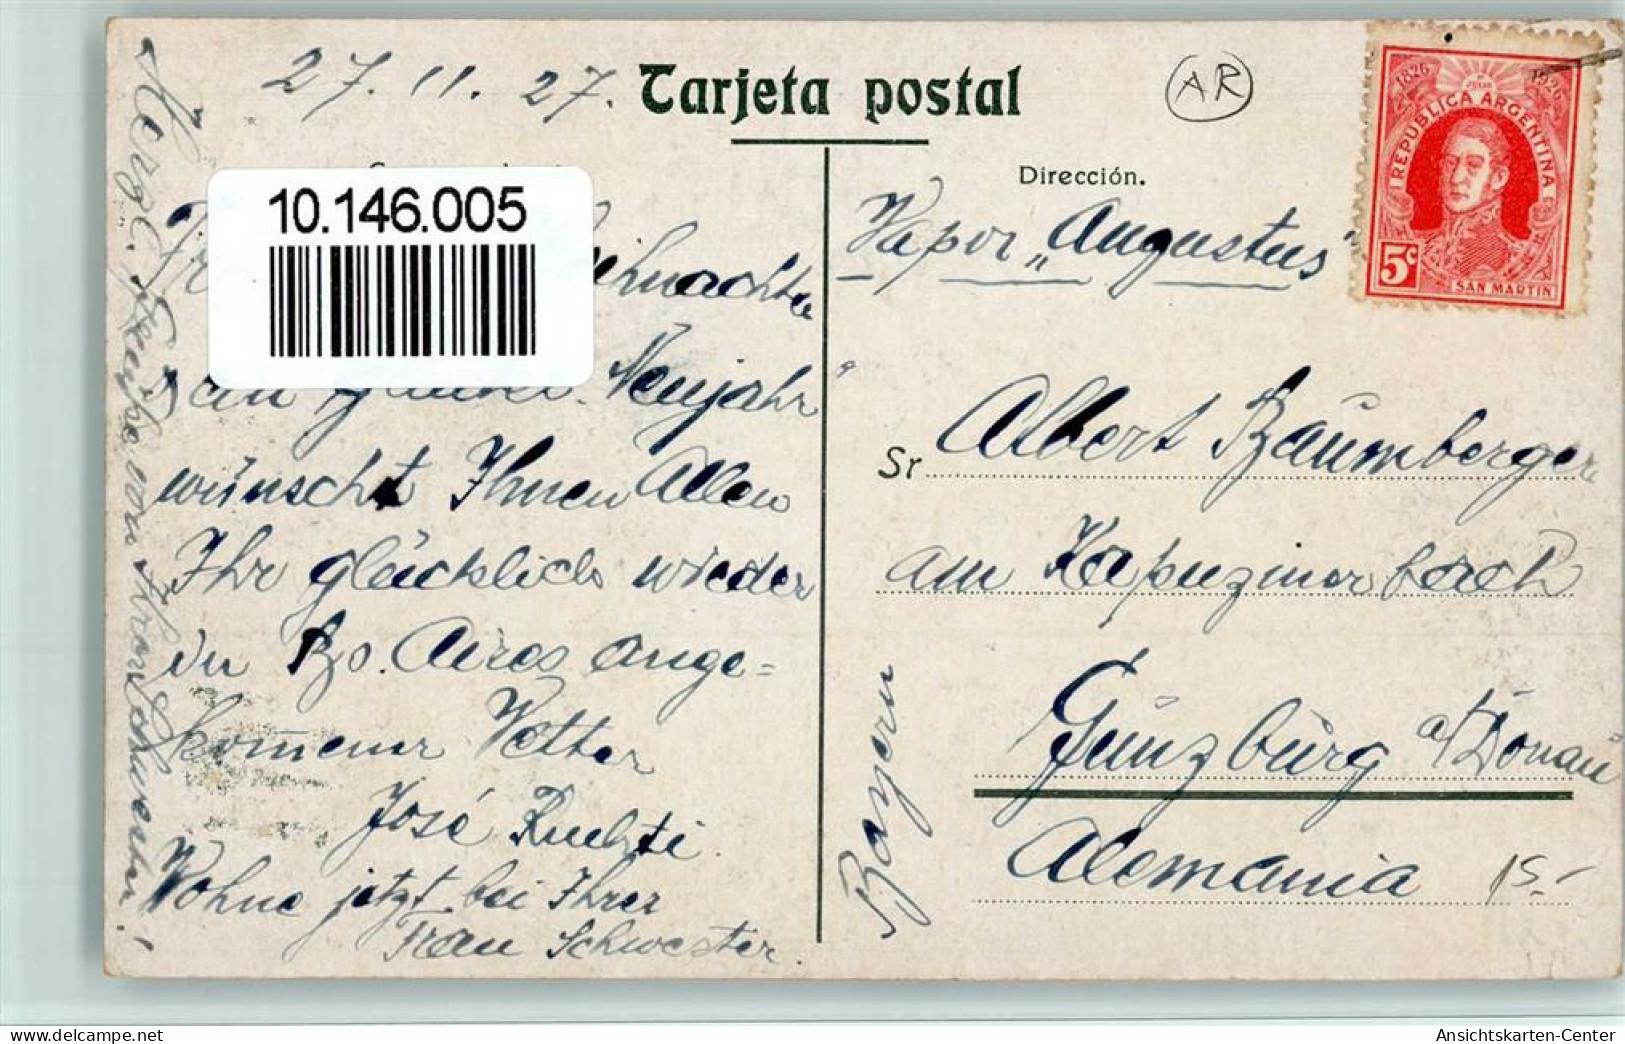 27. 11. 27.
Tarjeta postal
AR
1826 1926
REPUBLICA ARGENTINA
5c
SAN MARTIN
Dirección.
10.146.005
Vapor „Augustus"
Neujahr
wünscht Ihnen Allen
Ihr glücklich wieder
in Bs. Aires ange=
kommener Vetter
José
Wohne jetzt bei Ihrer
Frau Schwester.
Herzl. Grüße von Frau Schwester!
Sr Albert Baumberger
am Kapuzinerbach
Günzburg a/Donau
Bayern
Alemania
15.-
www.delcampe.net
Ansichtskarten-Center